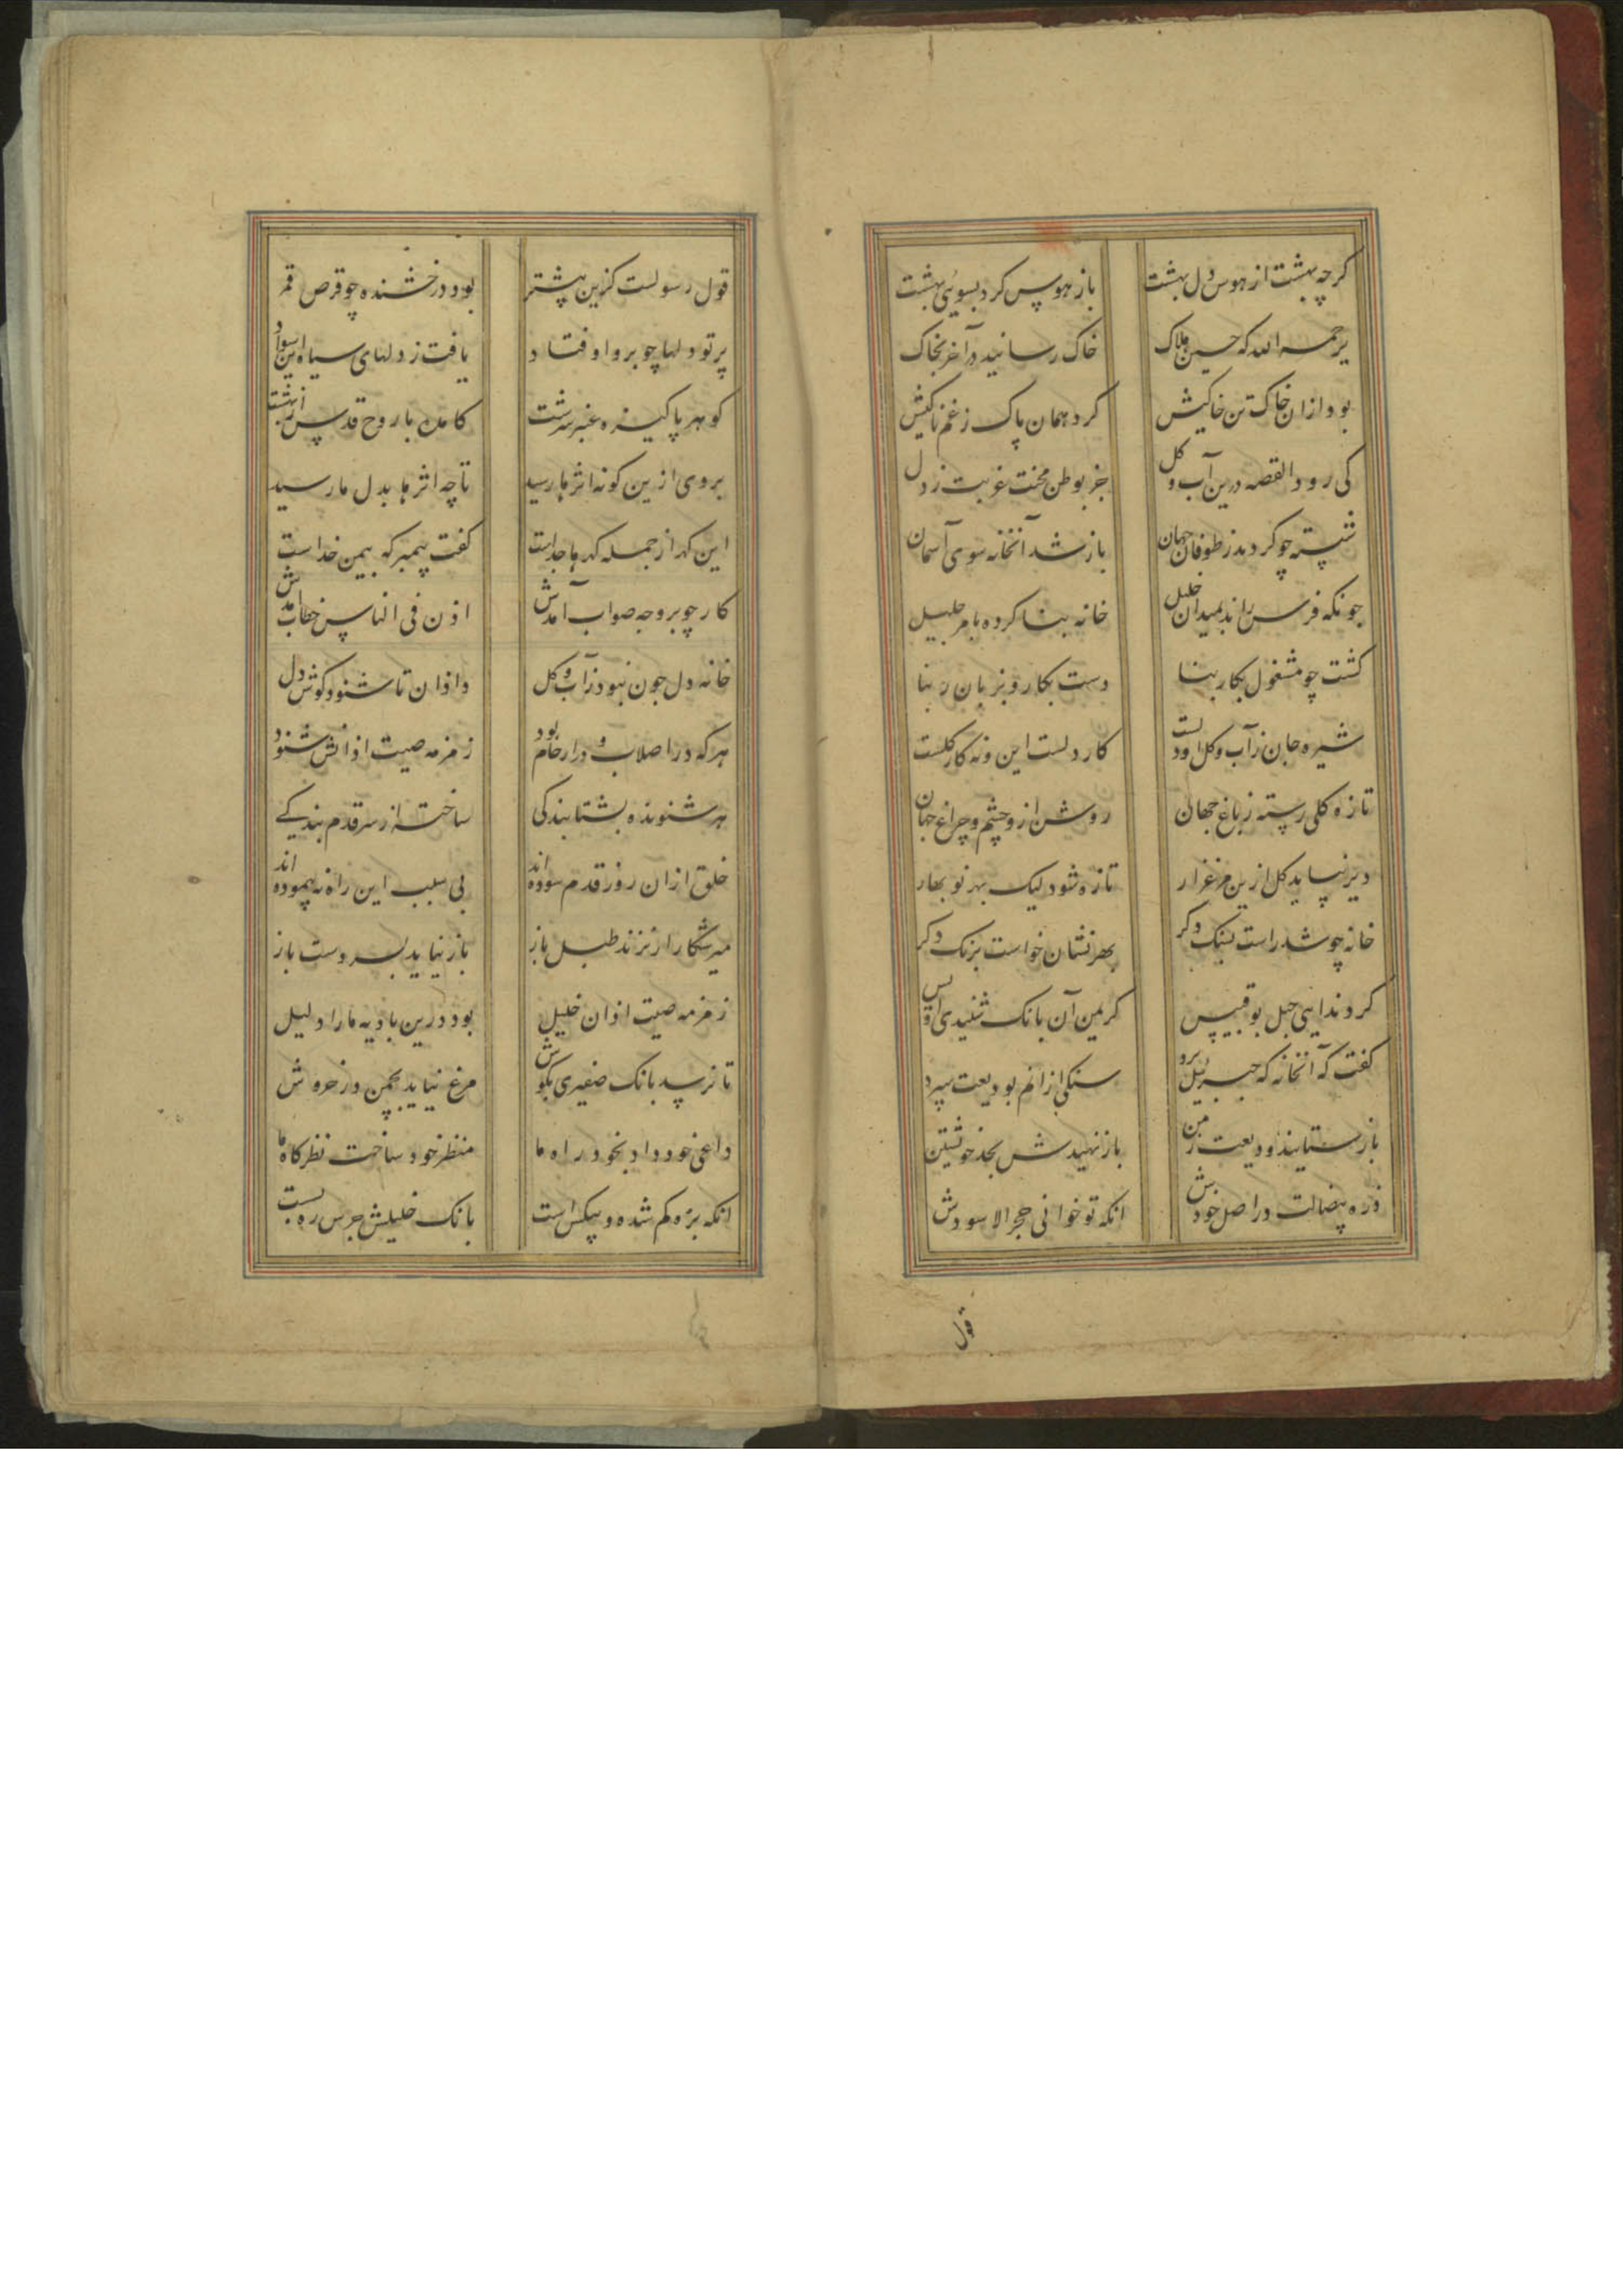 کرچه بهشت از هوس دل بهشت باز هوس کرد بسوئی بهشت
یرحمه الله که حسین هلاک خاک رسانید در آخر بخاک
بود ازان خاک تن خاکیش کرد همان پاک ز غم ناکیش
کی رود القصه درین آب و کل جز بوطن محنت غربت ز دل
شسته چو کردید ز طوفان جهان باز شد آنخانه سوی آسمان
چونکه فرس راند بمیدان خلیل خانه بنا کرده بامر جلیل
کشت چو مشغول بکار بنا دست بکار و بزبان ربنا
شیره جان زآب و کل او دلست کار دلست این و نه کار کلست
تازه کلی رسته ز باغ جهان روشن ازو چشم و چراغ جهان
دیر نیاید کل ازین مرغزار تازه شود لیک بهر نو بهار
خانه چو شد راست بسنک دکر بهر نشان خواست برنک دکر
کرد ندایی جبل بو قبیس کریمن آن بانک شنیدی اویس
کفت که آنخانه که جبریل برو سنکی ازانم بودیعت سپرد
باز ستانید ودیعت ز من باز نهیدش بجد خویشتن
دره بیضاست در اصل خودش انکه تو خوانی حجر الاسودش
قول
قول رسولست کزین پیشتر بود درخشنده چو قرص قمر
پرتو دلها چو برو اوفتاد یافت ز دلهای سیاه این سواد
کوهر پاکیزه عنبر سرشت کامد با روح قدس از بهشت
بروی ازین کونه اثرها رسید تا چه اثرها بدل ما رسید
این کهر از جمله کهرها جداست کفت پیمبر که یمین خداست
کار چو بر وجه صواب آمدش اذن فی الناس خطاب آمدش
خانه دل چون نبود زآب و کل داد اذان تا شنود کوش دل
هرکه در اصلاب و در ارحام بود زمزمه صیت اذانش شنود
هر شنونده بشتابندکی ساخته از سر قدم بندکی
خلق ازان روز قدم سوده اند بی سبب این راه نه پیموده اند
میر شکار ار نزند طبل باز باز نیاید بسر دست باز
زمزمه صیت اذان خلیل بود درین بادیه ما را دلیل
تا نرسد بانک صفیری بکوش مرغ نیاید بچمن در خروش
داعی خود داد بخود راه ما منظر خود ساخت نظرکاه ما
انکه بره کم شده و بیکس است بانک خلیلش جرس ره بست